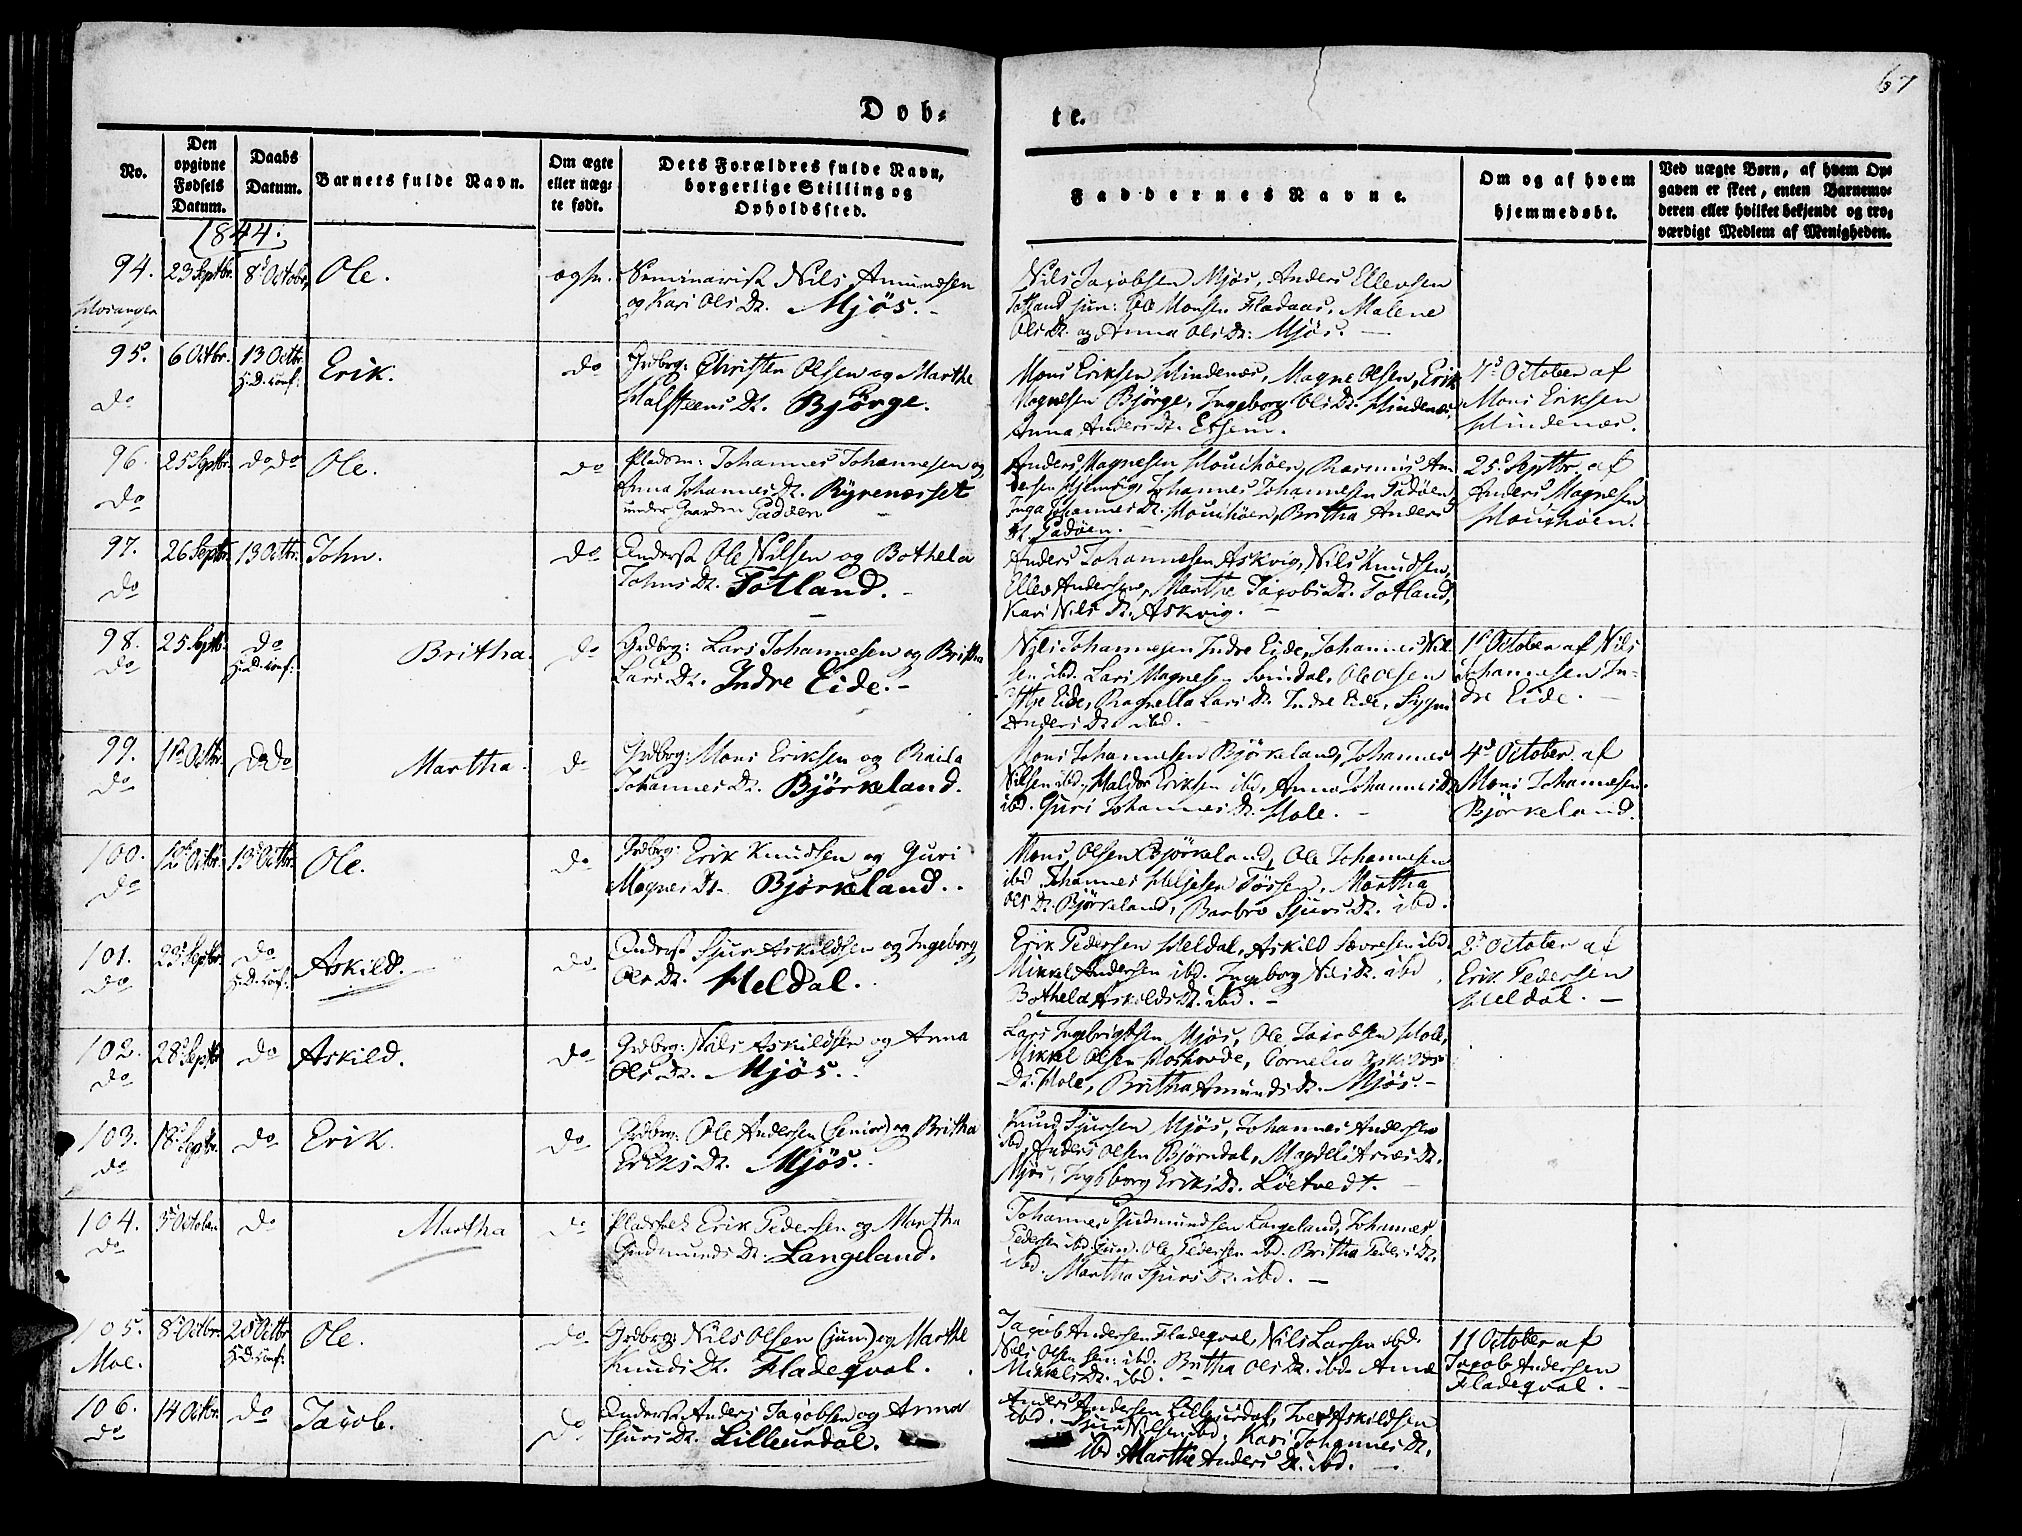 67
Døb-
te.
No.
Den opgivne Fødsels Datum.
Daabs Datum.
Barnets fulde Navn.
Om ægte eller uæg-te født.
Dets Forældres fulde Navn, borgerlige Stilling og Opholdssted.
Faddernes Navne.
Om og af hvem hjemmedøbt.
Ved uægte Børn, af hvem Op-gaven er skeet, enten Barnemo-deren eller hvilket bekjendt og tro-værdigt Medlem af Menigheden.
1844.
94. 23 Septbr. 8de Octobr. Ole.
Seminarist Nils Amundsen
og Kari Ols Dt. Mjøs.
Nils Jacobsen Mjøs, Anders Ellevsen
Totland jun: Ole Monsen Fladaas, Malene
Ols Dt. og Anna Ols Dt. Mjøs.
95. 6 Octbr. 13 Octbr. Erik. do
do H.D. conf:
Grdbrg: Christen Olsen og Marthe
Halsteens Dt. Bjørge.
Mons Eriksen Hindenæs, Magne Olsen, Erik
Magnesen Bjørge, Ingeborg Ols Dt. Hindenæs,
Anna Anders Dt.
7de October af
Mons Eriksen
Hindenæs.
96. 25 Septbr. do do Ole. do
do
Pladsm: Johannes Johannesen og
Anna Johannes Dt. Byrenæsset
under Gaarden Padøen
Anders Magnesen Rasmus An-
Johannes Johannesen Padøen
Inga Johannes Dt. Britha Anders
Dt. Padøen.
25 Septbr. af
Anders Magnesen
97. 26 Septbr. 13 Octbr. John. do
do
Ole Nilsen og Bothela
Johns Dt. Totland.
Anders Johannesen Askvig, Nils Knudsen,
Ellev Andersen, Marthe Jacobs Dt. Totland,
Kari Nils Dt. Askvig.
98. 25 Septbr. do Britha. do
do H.D. conf:
Grdbrg: Lars Johannesen og Britha
Lars Dt. Indre Eide.
Nils Johannesen Indre Eide, Johannes Nil-
sen ibd. Lars Magnesen Ole Olsen
Ytre Eide, Ragnella Lars Dt. Indre Eide,
Anders Dt. ibd.
1ste October af Nils
Johannesen In-
dre Eide.
99. 1ste Octbr. do do Martha. do
do
Grdbrg: Mons Eriksen og
Johannes Dt. Bjørkeland.
Mons Johannesen Bjørkeland, Johannes
Nilsen ibd. Haldor Eriksen ibd, Anna Johannes Dt.
ibd. Guri Johannes Dt. Hole.
4de October af
Mons Johannesen
Bjørkeland.
100. 13de Octbr. Ole. do
do
Grdbrg: Erik Knudsen og Guri
Magnes Dt. Bjørkeland.
Mons Olsen Bjørkeland, Ole Johannesen
ibd. Johannes Martha
Ols Dt. Bjørkeland, Barbro Sjurs Dt. ibd.
101. 23 Septbr. do Askild. do
do H.D. conf:
Sjur Askildsen og Ingeborg
Ols Dt. Heldal.
Erik Pedersen Heldal, Askild ibd.
Mikkel Andersen ibd. Ingeborg Nils Dt. ibd
Bothela Askilds Dt. ibd.
October af
Erik Pedersen
Heldal.
102. 28 Septbr. do Askild. do
do
Grdbrg: Nils Askildsen og Anna
Ols Dt. Mjøs.
Lars Ingebrigtsen Mjøs, Ole Hole,
Mikkel Olsen
Dt. Hole, Britha Amunds Dt. Mjøs.
103. 18 Septbr. do Erik. do
do
Grdbrg: Ole Andersen (senior) og Britha
Eriks Dt. Mjøs.
Knud Sjursen Mjøs, Johannes Andersen
ibd, Anders Olsen Bjørndal,
Mjøs, Ingeborg Eriks Dt. Løtvedt.
104. 3de October do Martha do
do
Erik Pedersen og Martha
Gudmunds Dt. Langeland.
Johannes Gudmundsen Langeland, Johannes
Pedersen ibd. (jun). Ole Pedersen ibd. Britha Peders Dt.
ibd. Martha Sjurs Dt. ibd.
105. 8de Octbr. 20 Octbr. Ole. do
Moe. H.D. conf:
Grdbrg: Nils Olsen (jun:) og Marthe
Knuds Dt. Fladeqval.
Jacob Andersen Fladeqval, Nils Larsen ibd.
Nils Olsen sen: ibd. Britha Ols Dt. ibd.
Mikkels Dt. ibd.
11 October af
Jacob Andersen
Fladeqval.
106. 14 Octbr. do Jacob. do
do
Anders Jacobsen og Anna
Sjurs Dt. Lilleurdal.
Anders Andersen Lilleurdal, Iver Askildsen
ibd. Sjur Nilsen ibd, Kari Johannes Dt.
ibd. Marthe Anders Dt. ibd.